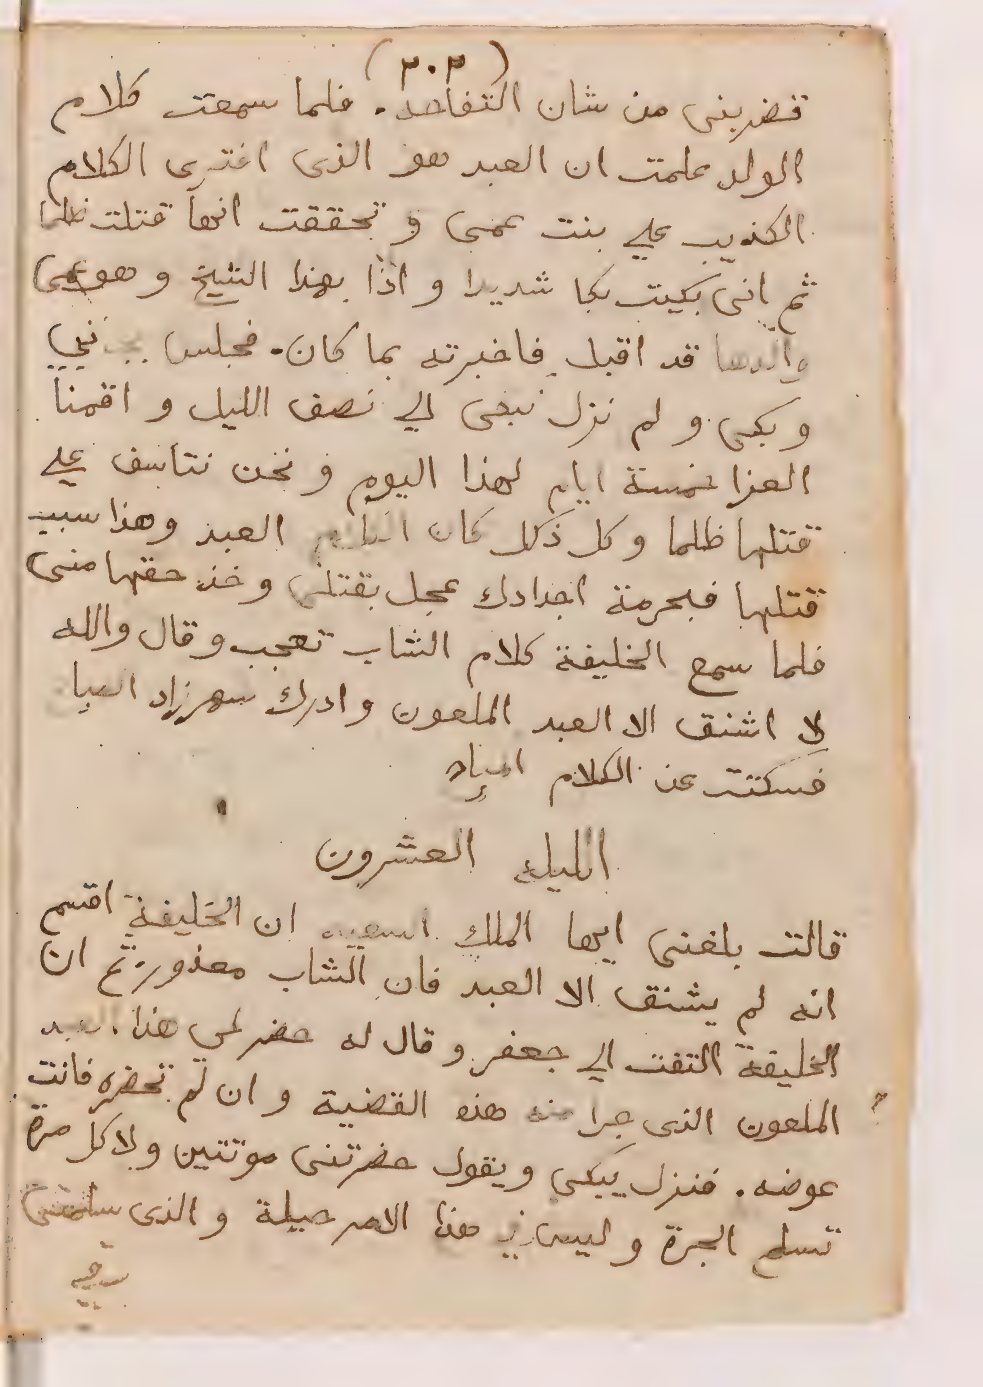 (٢٠٢)
تضربنى من شان التفاحه. فلما سمعت كلام
الولد علمت ان العبد هو الذى افترى الكلام
الكذب على بنت عمى و تحققت انها قتلت ظلما
ثم انى بكيت بكا شديدا و اذا بهذا الشيخ و هو عمى
والدها قد اقبل فاخبرته بما كان. فجلس بجنبى
و بكى و لم نزل نبكى الى نصف الليل و اقمنا
العزا خمسة ايام لهذا اليوم و نحن نتاسف على
قتلها ظلما و كل ذلك كان العبد وهذا سبب
قتلها فبحرمة اجدادك عجل بقتلى و خذ حقها منى
فلما سمع الخليفة كلام الشاب تعجب و قال والله
لا اشنق الا العبد الملعون و ادرك شهرزاد الصبا
فسكتت عن الكلام المباح
الليله العشرون
قالت بلغنى ايها الملك السعيد ان الخليفة اقسم
انه لم يشنق الا العبد فان الشاب معذور ثم ان
الخليفة التفت الى جعفر و قال له حضر لى هذا العبد
الملعون الذى جرا منه هذه القضية و ان لم تحضره فانت
عوضه. فنزل يبكى و يقول حضرتنى موتتين و لا كل مرة
تسلم الجرة و ليس فى هذا الامر حيلة و الذى سلمنى